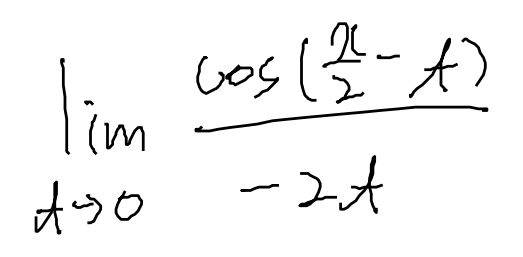 lim_{t→0} cos(π/2 - t) / (-2t)